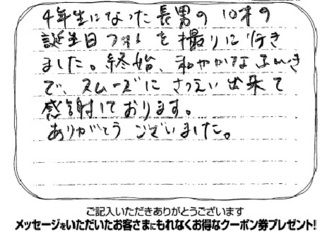 4年生になった長男の10才の
誕生日フォトを撮りに行き
ました。終始、和やかなふんいき
で、スムーズにさつえい出来て
感謝しております。
ありがとうございました。
ご記入いただきありがとうございます
メッセージをいただいたお客さまにもれなくお得なクーポン券プレゼント!